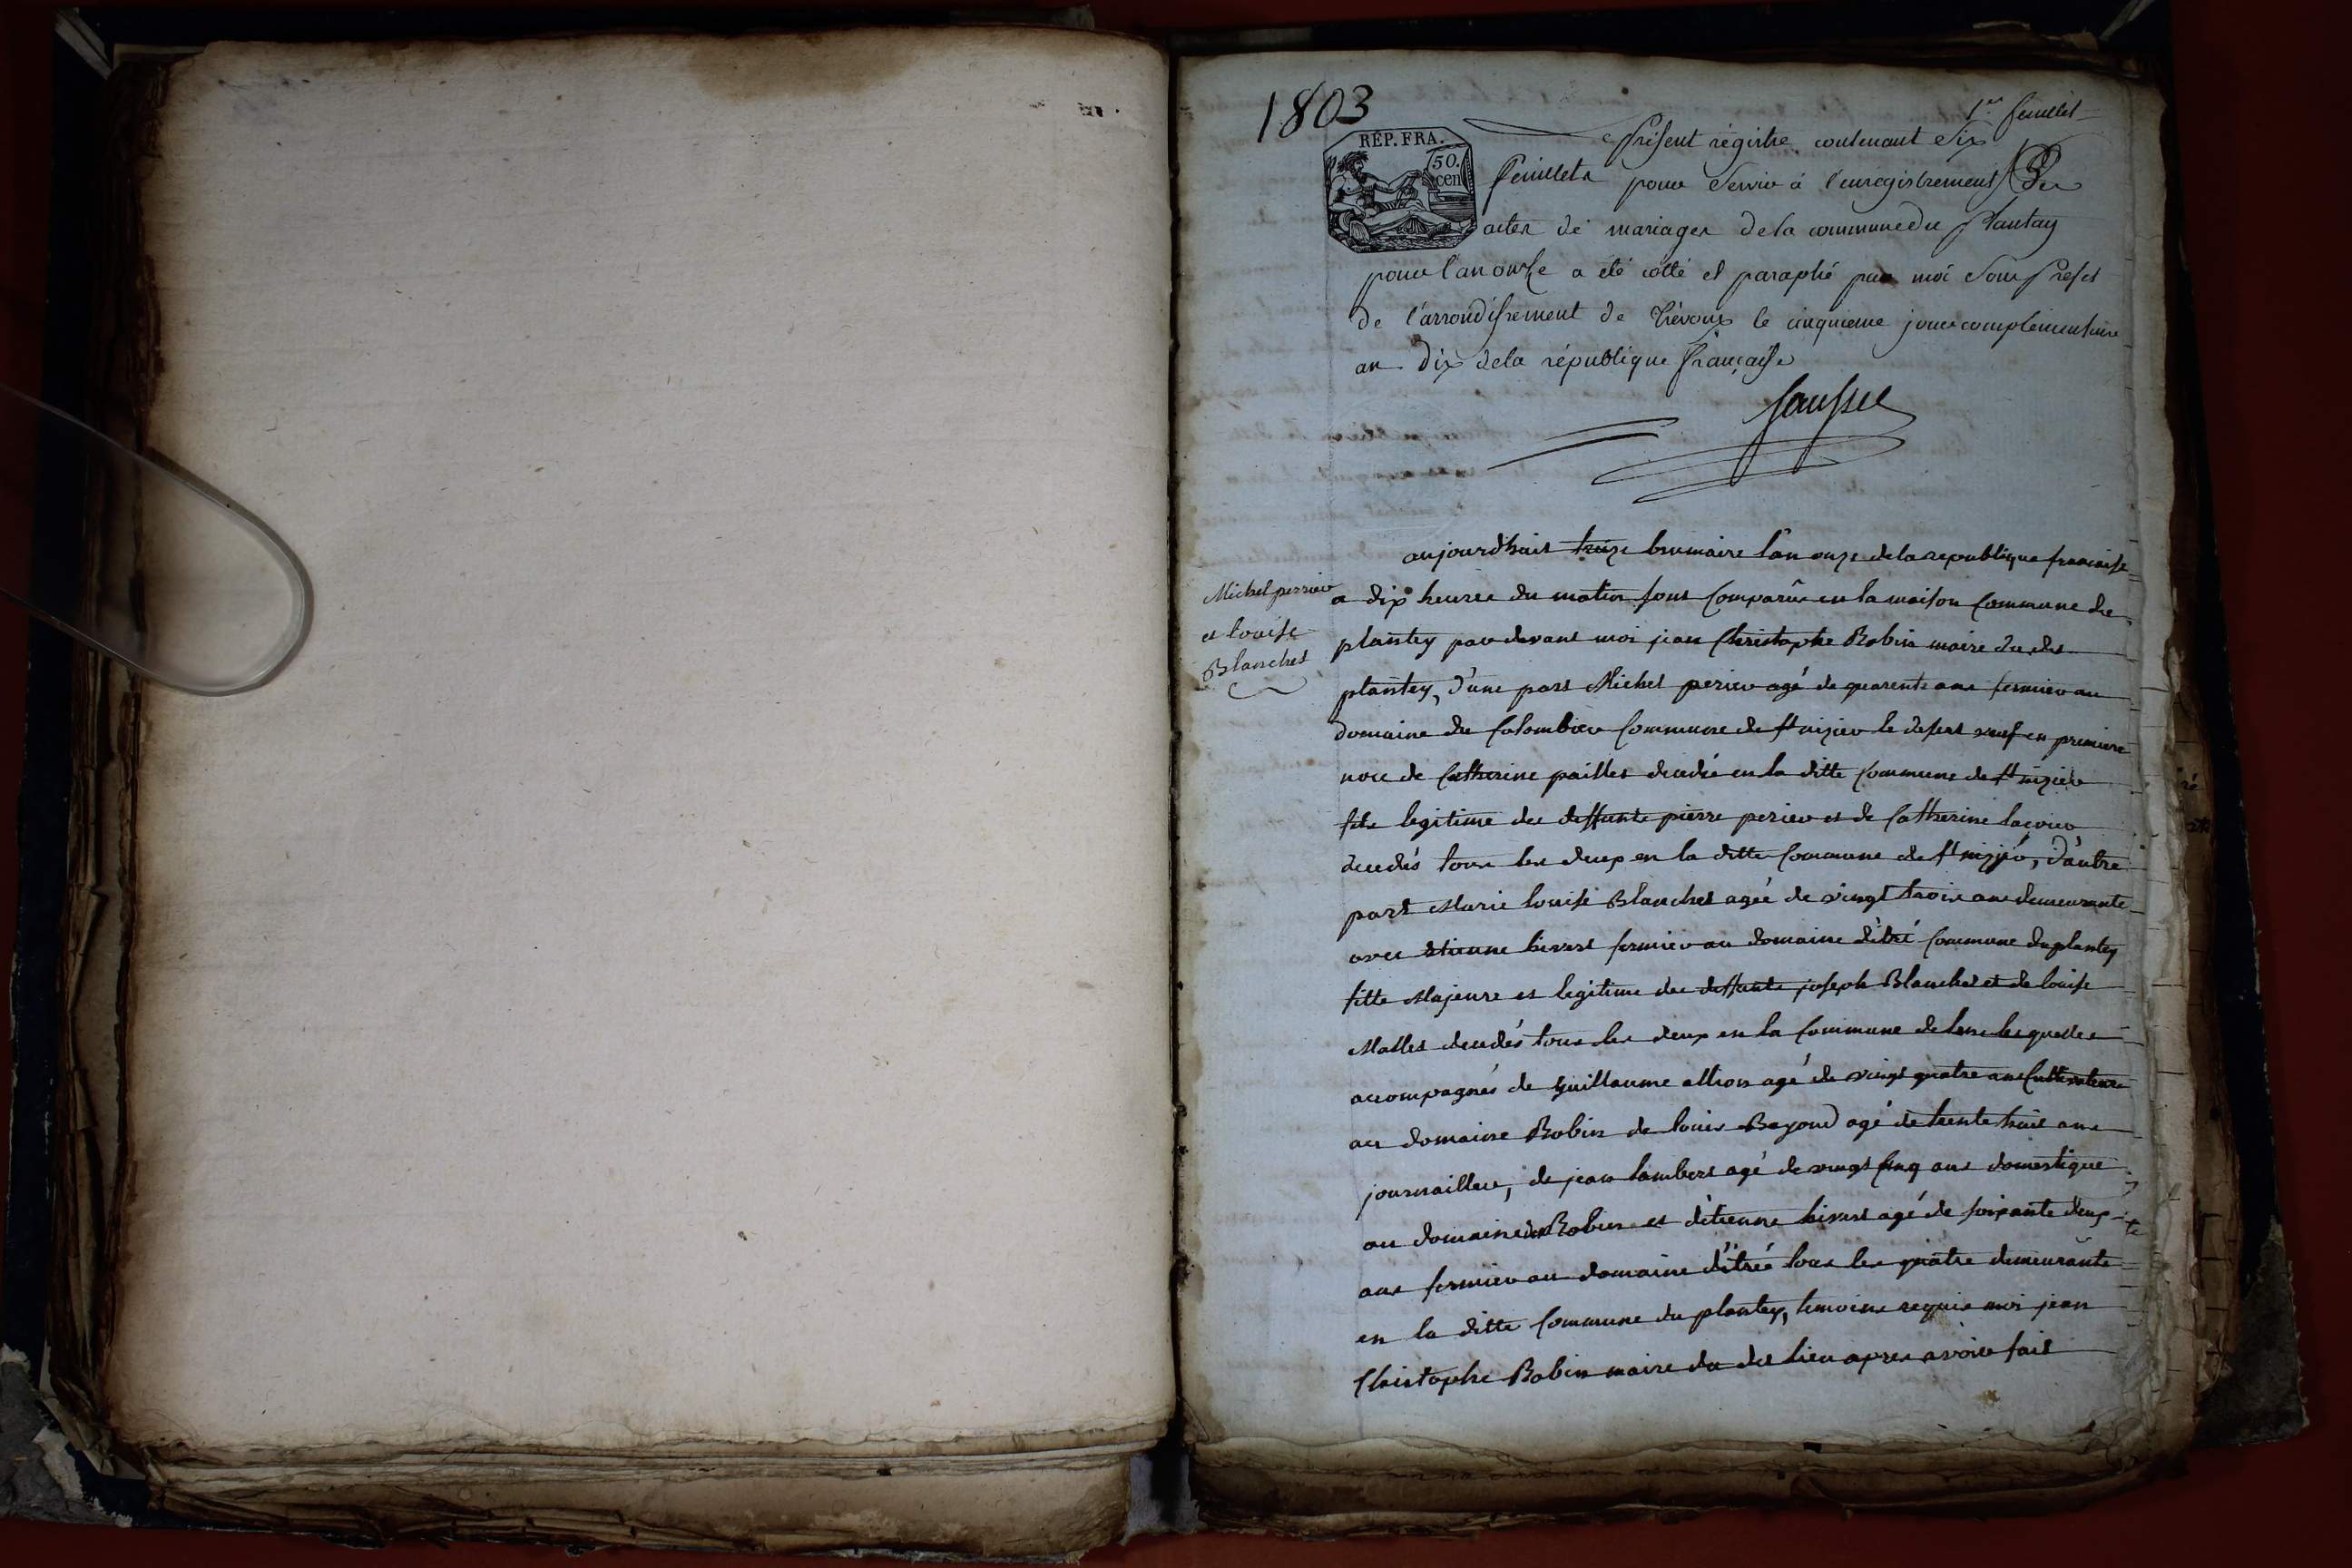 1803
1er feuillet
RÉP. FRA.
50.
cen
Présent régistre contenant Six
feuillets pour Servir à l'enregistrement Des
actes de mariages dela commune du Plantay
pour l'an onze a été cotté et paraphé par moi Sous Prefet
de l'arrondissement de Trévoux le cinquieme jour complementaire
an Dix dela république française
aujourdhuit treize brumaire l'an onze dela republique francaise
Michel perrier
et louise
Blanchet
a dix heures du matin sont Comparûs en la maison Commune du
plantey par devant moi jean Christophe Robin maire du dit
plantey, d'une part Michel perier agé de quarente ans fermier au
domaine du Colombier Commune de st nizier le desert veuf en premiere
noce de Catherine paillet decedée en la ditte Commune de st nizier
fils legitime des deffunts pierre perier et de Catherine
decedés tous les deux en la ditte Commune de st nizier, d'autre
part Marie louise Blanchet agée de vingt trois ans demeurante
avec etienne fermier au domaine d'êtré Commune du plantey
fille Majeure et legitime des deffunts joseph Blanchet et de louise
Mallet decedés tous les deux en la Commune de lesquelles
accompagnés de guillaume allion agé de vingt quatre ans Cultivateur
au domaine Robin de louis Bayond agé de trente huit ans
journaillier, de jean lambert agé de vingt Cinq ans domestique
au domaine Robin et d'etienne agé de soixante deux
ans fermier au domaine d'êtré tous les quatre demeurants
en la ditte Commune du plantey, temoins requis moi jean
Christophe Robin maire du dit lieu apres avoir fait